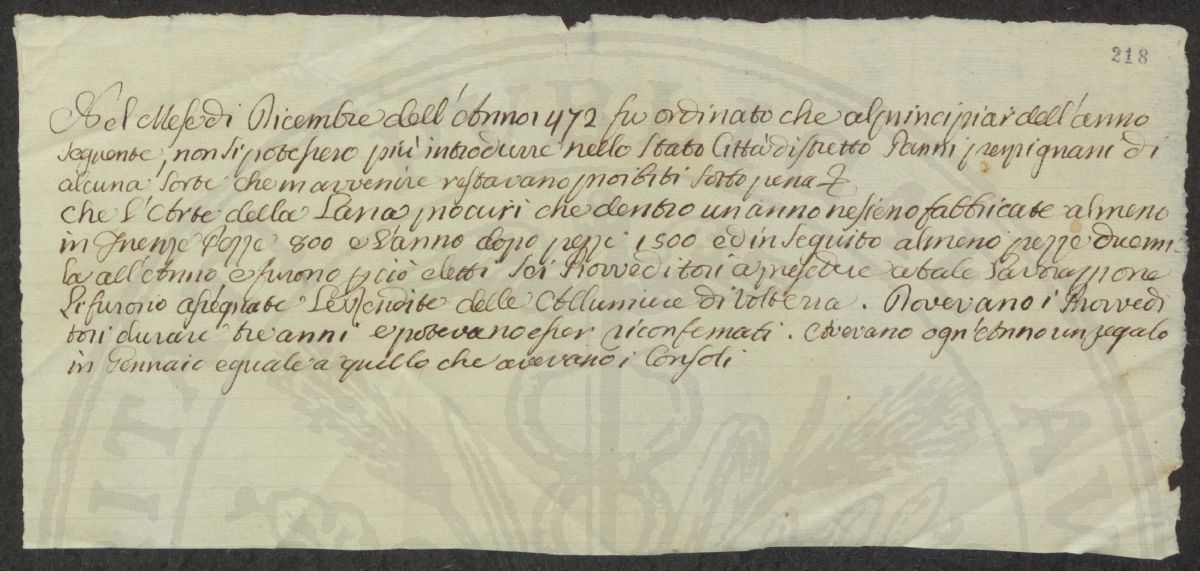 218
Nel Mese di Dicembre dell'Anno 1472 fu ordinato che al principiar dell'anno
seguente, non si potessero più introdurre nello Stato Città distretto Panni perpignani di
alcuna Sorte che in avvenire restavano proibiti sotto pena &
Che l'Arte della Lana procuri che dentro un anno ne sieno fabbricate almeno
in Firenze Pezze 800 e l'anno dopo pezze 1500 ed in seguito almeno pezze duemi-
la all'Anno e furono perciò eletti Sei Provveditori a presedere a tale Lavorazzione
Li furono assegnate Le Rendite delle Allumiere di Volterra. Dovevano i Provvedi
tori durare tre anni e potevano esser riconfermati. Avevano ogn'Anno un regalo
in Gennaio eguale a quello che avevano i Consoli